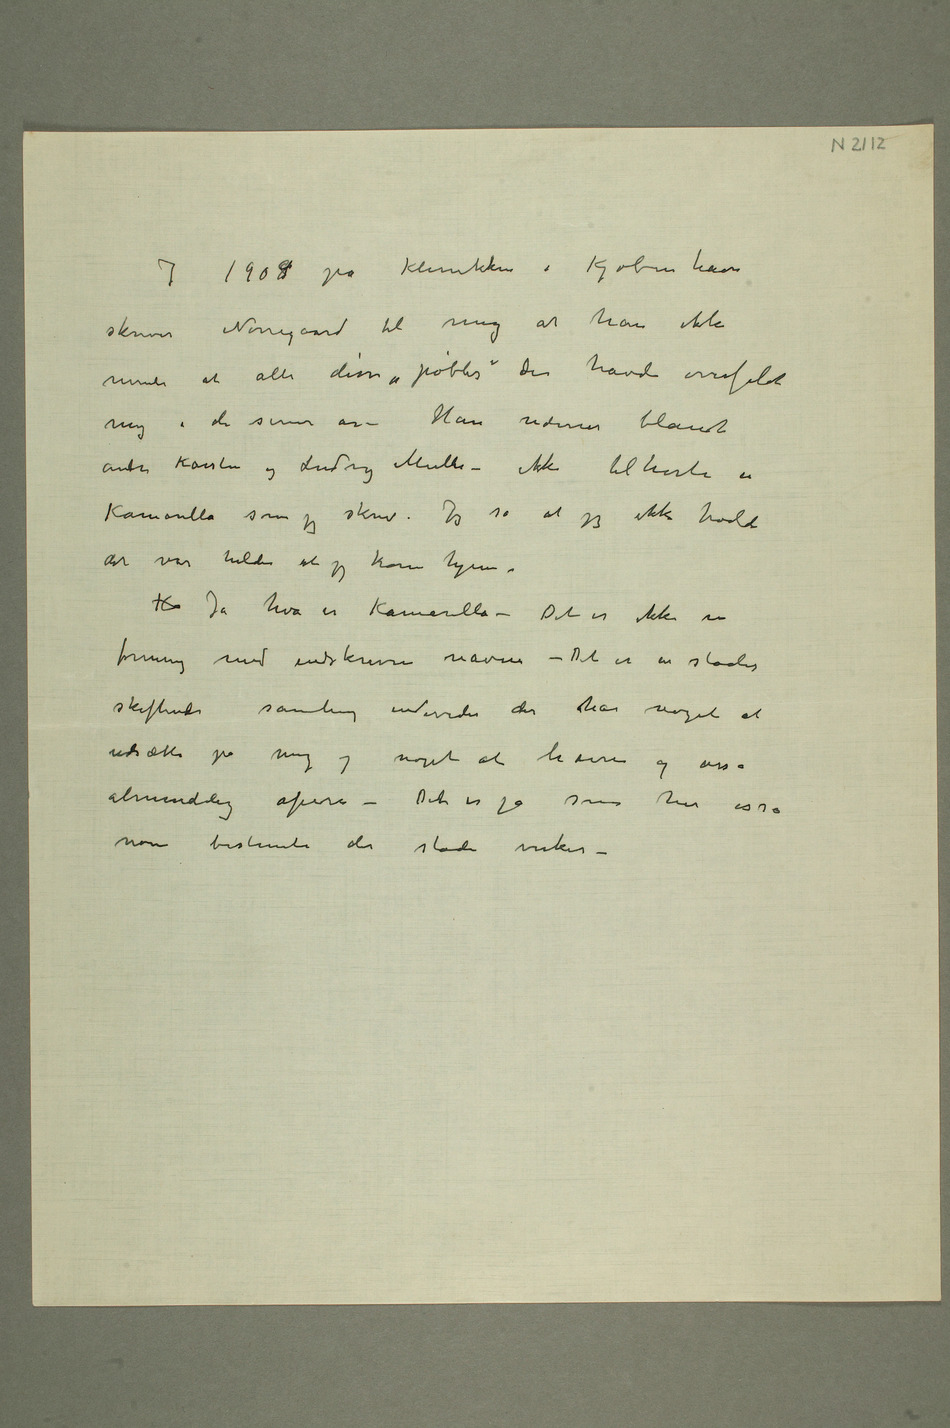 N 2112
I 1908 på Klinikken i Kjøbenhavn
skriver Nørregaard til mig at han ikke
mente at alle disse „pøbler" der havde overfaldt
mig i de senere år – Han nævner blandt
andre Karsten og Ludvig Müller – ikke tilhørte en
Kamarilla som jeg skrev. Jeg sa at jeg ikke trodde
det var heldig at jeg kom hjem.
Ja hva er Kamarilla – Det er ikke en
forening med indskrevne navne – Det er en stadig
skiftende samling individer der har noget at
udsætte på mig og noget at hævne og også
almindelig – Det er jo som her også
noen bestemte der stadig virker –